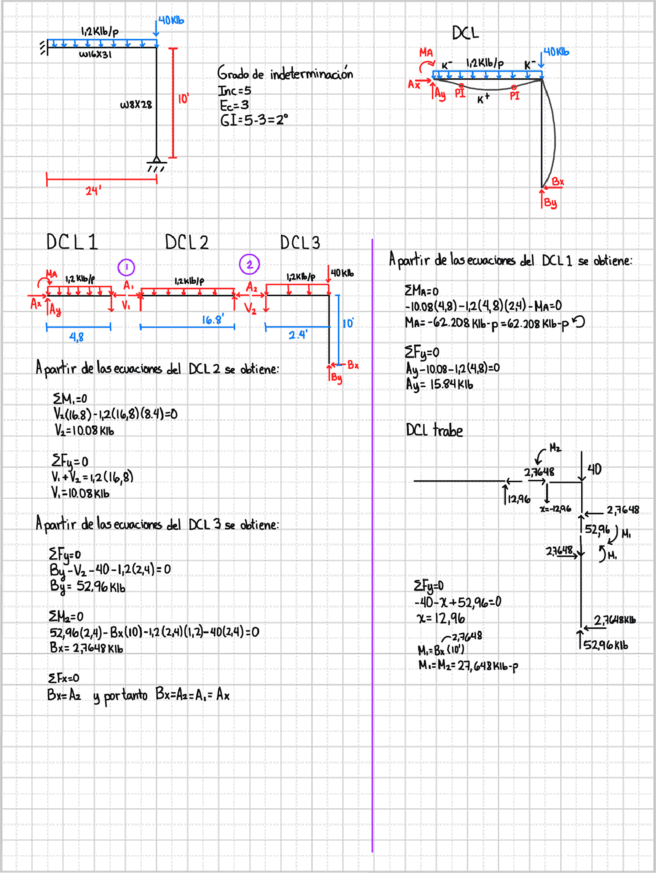 40Klb
1,2Klb/p
W16X31
W8X28
10'
24'
Grado de indeterminación
Inc=5
Ec=3
GI=5-3=2°
DCL
MA
K⁻
1,2Klb/p
K⁻
40Klb
Ax
Ay
PI
K⁺
PI
Bx
By
DCL1
DCL2
DCL3
1
2
MA
1,2Klb/p
A₁
1,2Klb/p
A₂
1,2Klb/p
40Klb
Ax
Ay
V₁
V₂
4,8
16.8'
2.4'
10'
Bx
By
A partir de las ecuaciones del DCL2 se obtiene:
ΣM₁=0
V₂(16.8)-1,2(16,8)(8.4)=0
V₂=10.08Klb
ΣFy=0
V₁+V₂=1,2(16,8)
V₁=10.08Klb
A partir de las ecuaciones del DCL3 se obtiene:
ΣFy=0
By-V₂-40-1,2(2,4)=0
By= 52,96Klb
ΣM₂=0
52,96(2,4)-Bx(10)-1,2(2,4)(1,2)-40(2,4)=0
Bx=2,7648Klb
ΣFx=0
Bx=A₂ y por tanto Bx=A₂=A₁=Ax
A partir de las ecuaciones del DCL1 se obtiene:
ΣMA=0
-10.08(4,8)-1,2(4,8)(2,4)-MA=0
MA=-62.208Klb-p=62.208Klb-p
ΣFy=0
Ay-10.08-1,2(4,8)=0
Ay= 15.84Klb
DCL trabe
M₂
2,7648
40
12,96
x=-12,96
2,7648
52,96
M₁
2,7648
M₁
2,7648Klb
52,96Klb
ΣFy=0
-40-x+52,96=0
x=12,96
2,7648
M₁=Bx(10')
M₁=M₂=27,648Klb-p